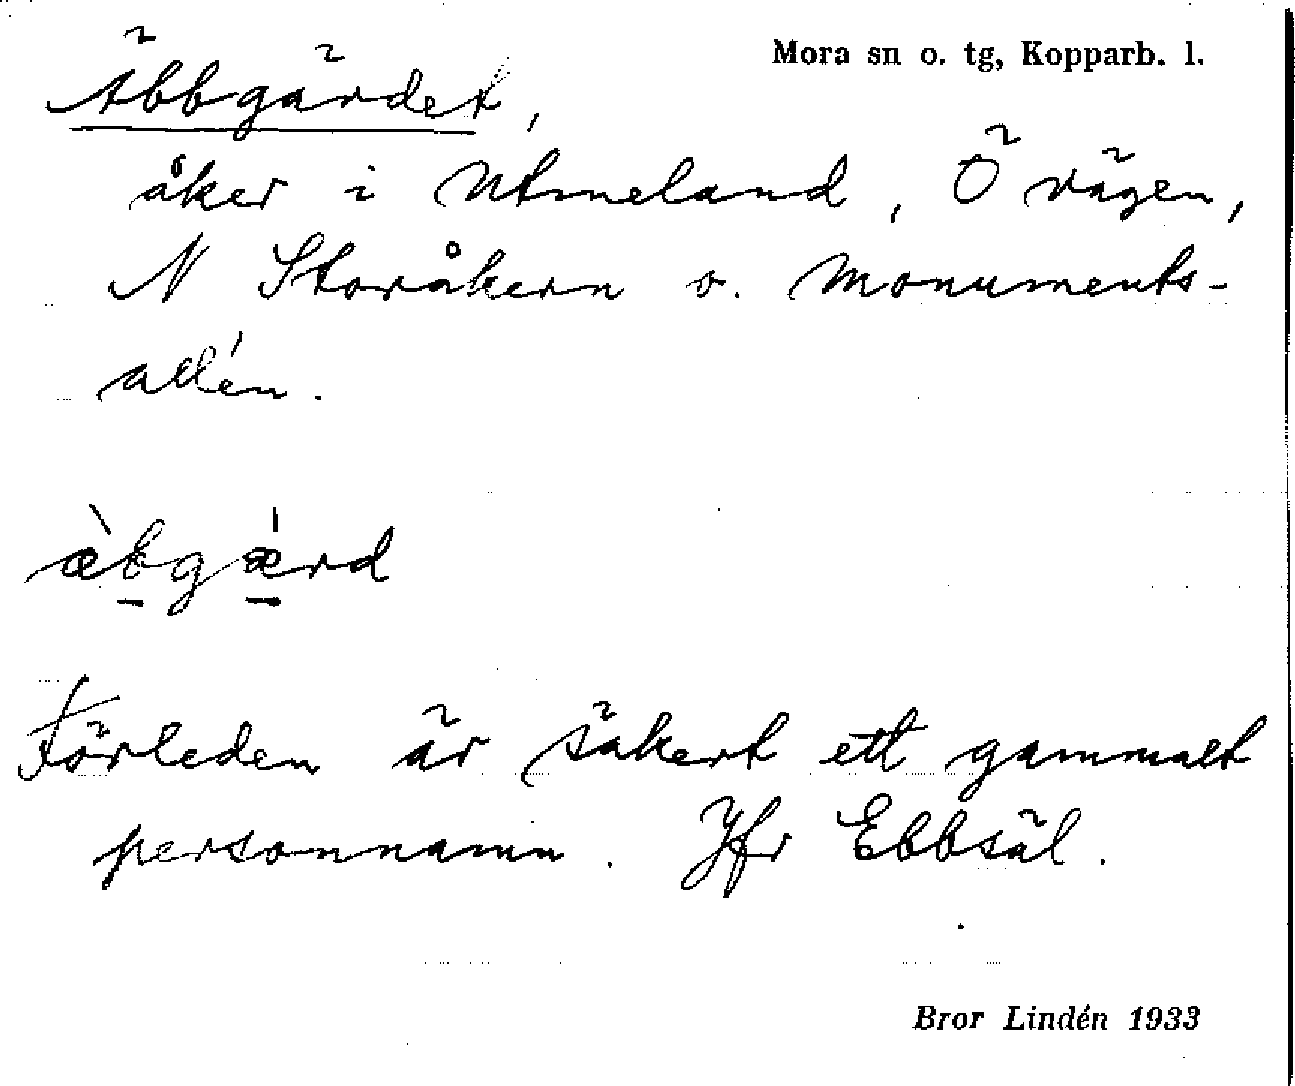 Mora sn o. tg, Kopparb. l.
Äbbgärdet,
åker i Utmeland, Ö vägen,
N Storåkern o. Monuments-
allén.
æ̀bgǽrd
Förleden är säkert ett gammalt
personnamn. Jfr Ebbsäl.
Bror Lindén 1933